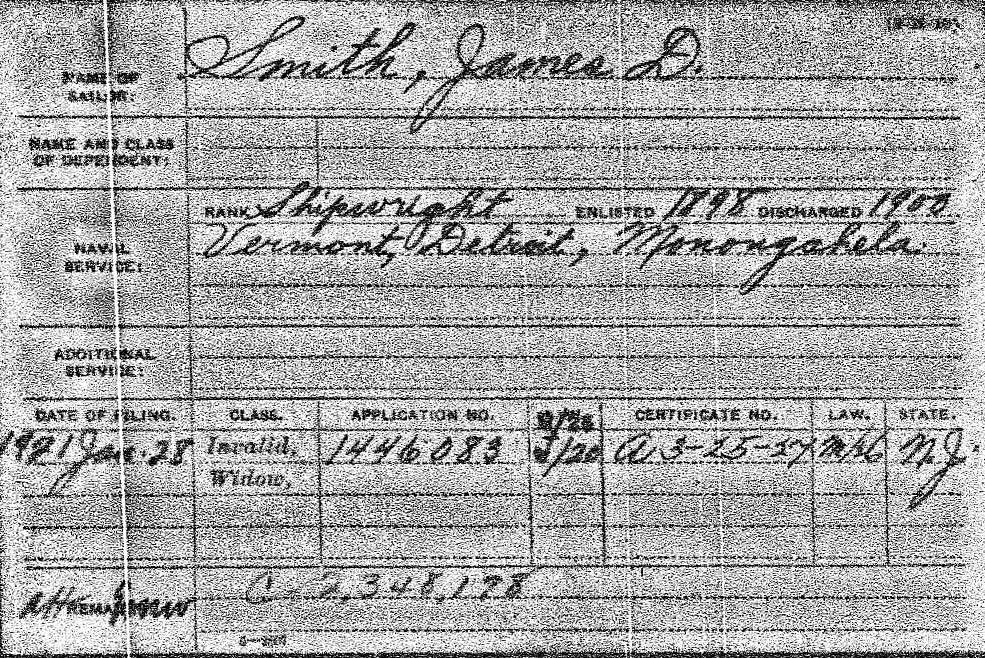 Smith, James D.
NAME OF
SAILOR:
NAME AND CLASS
OF DEPENDENT:
RANK Shipwright ENLISTED 1898 DISCHARGED 1900
Vermont, Detroit, Monongahela.
NAVAL
SERVICE:
ADDITIONAL
SERVICE:
DATE OF FILING. CLASS. APPLICATION NO. CERTIFICATE NO. LAW. STATE.
1921 Jan. 28 Invalid, 1446083 A 3-25-27 N.J.
Widow,
C 2,348,178